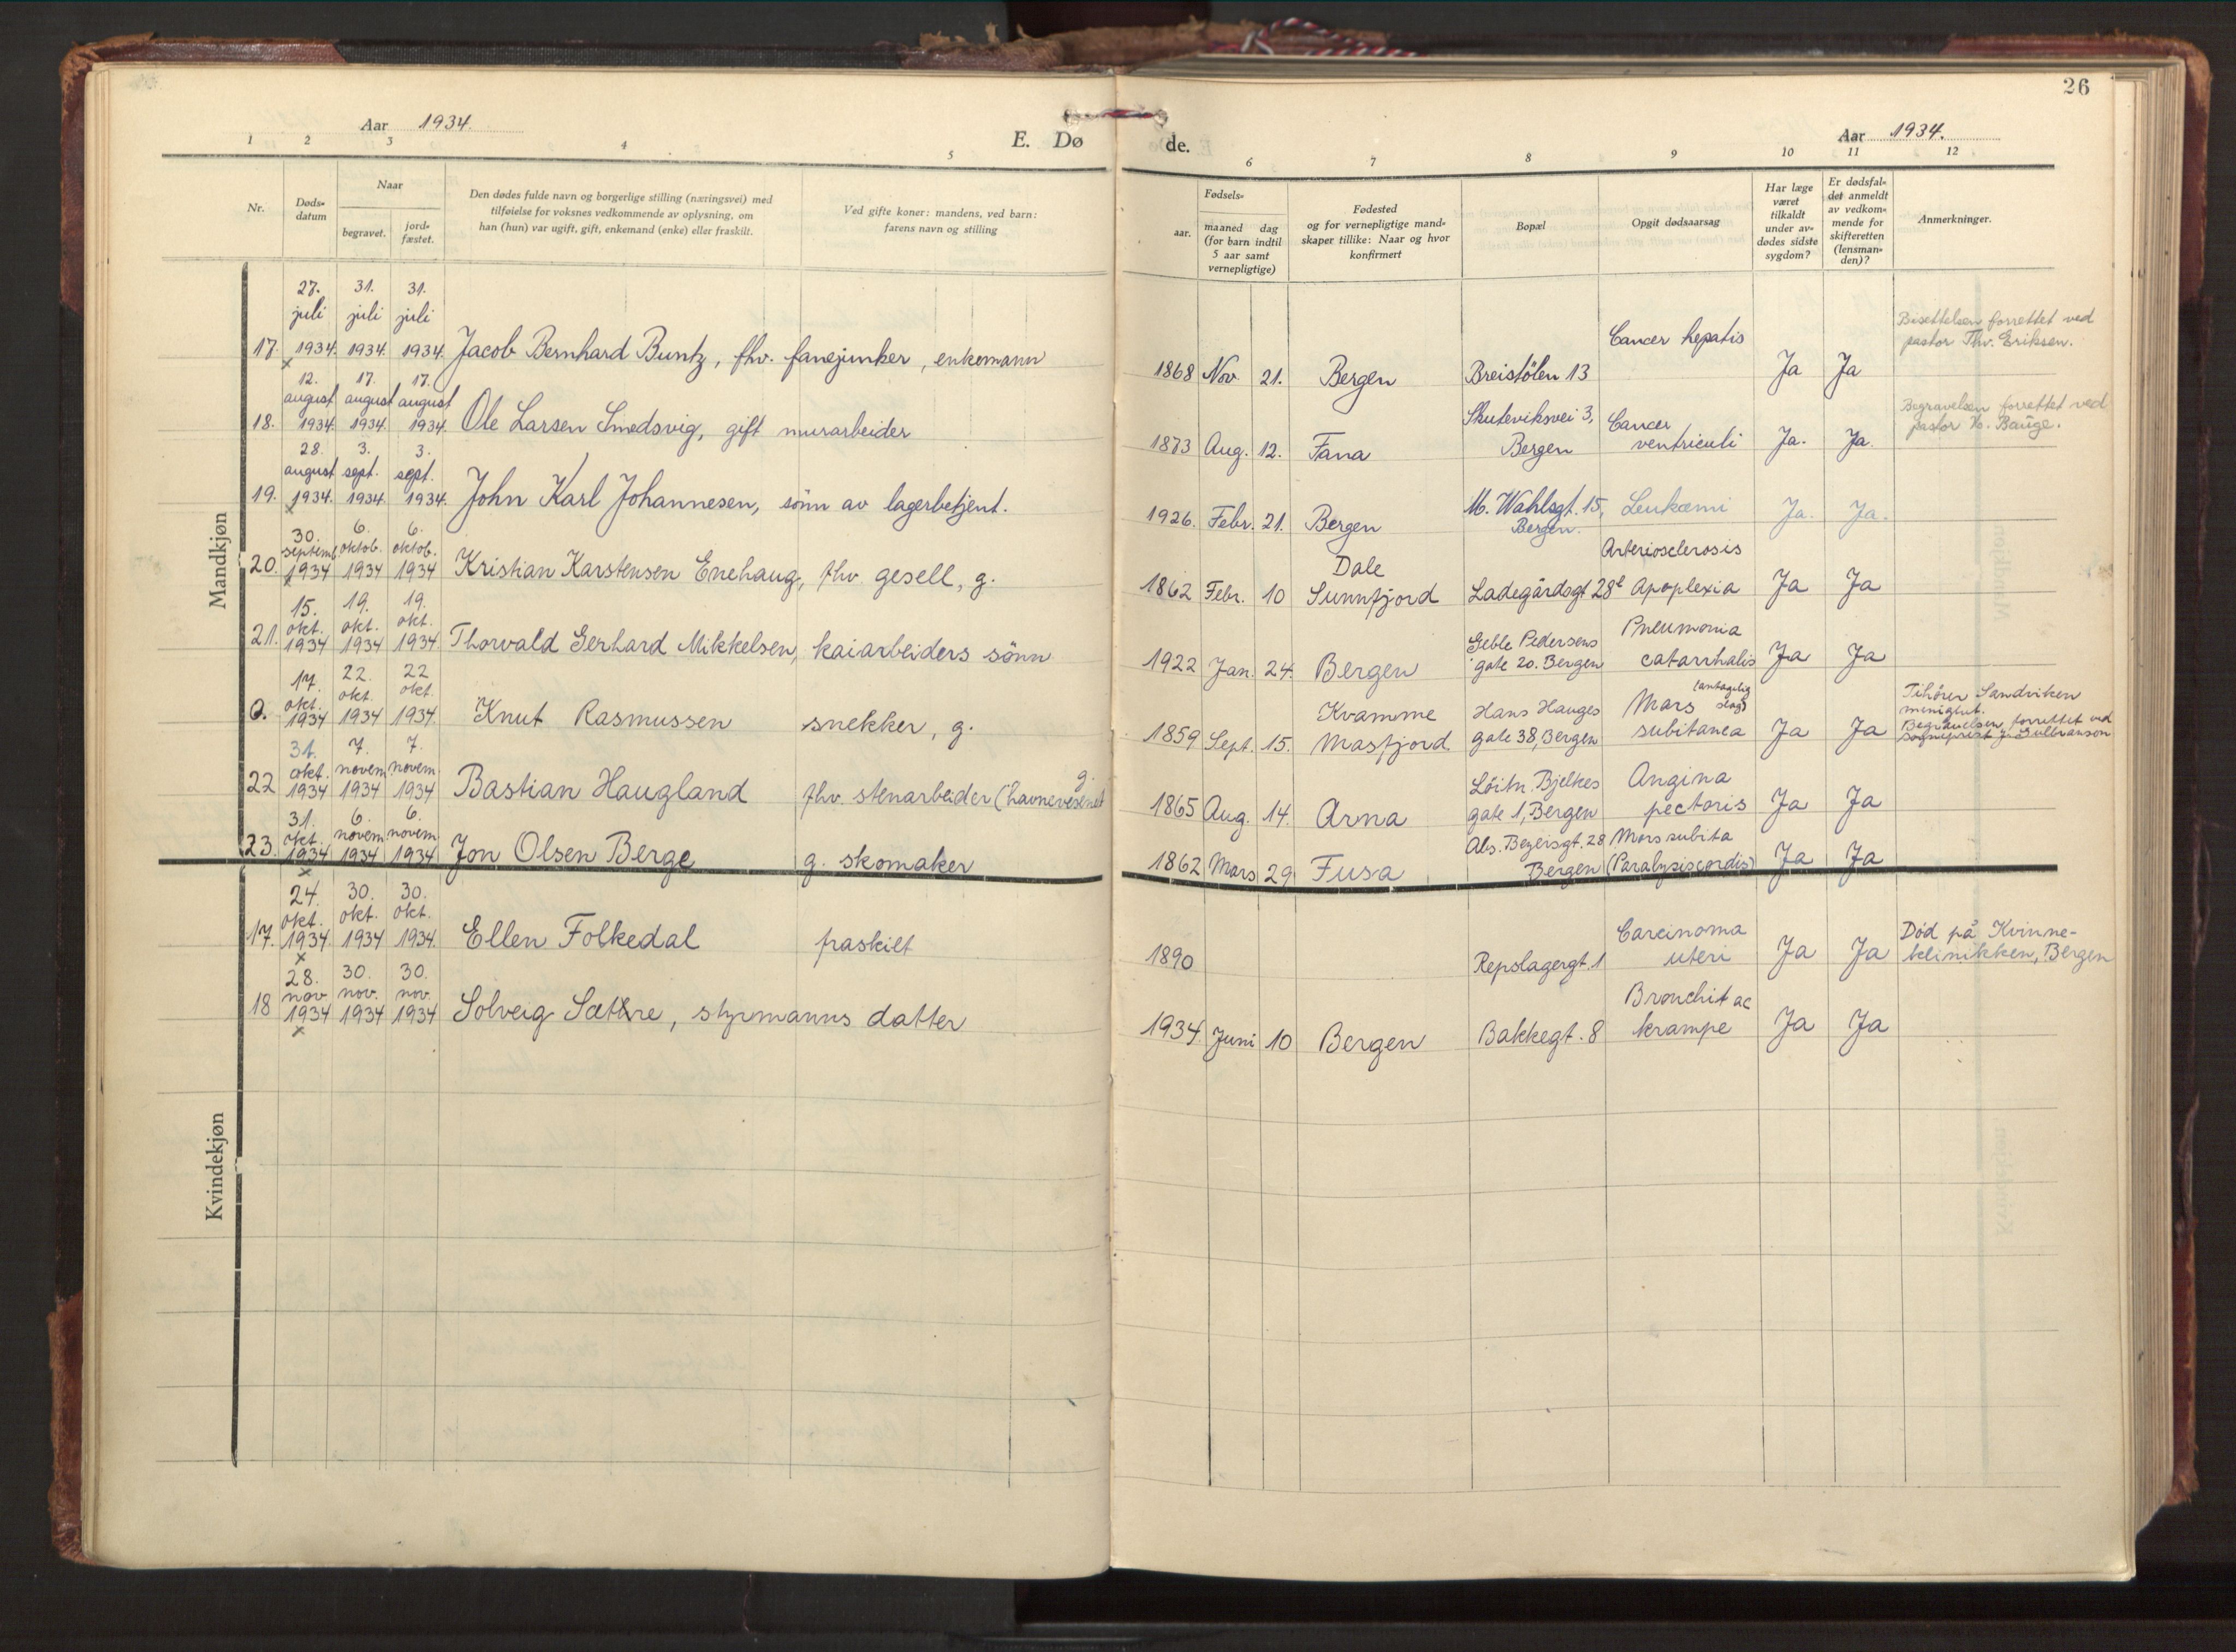 26
Aar 1934.
E. Dø
de.
Aar 1934.
1 2 3 4 5 6 7 8 9 10 11 12
Nr.
Døds-
datum
Naar
begravet.
jord-
fæstet.
Den dødes fulde navn og borgerlige stilling (næringsvei) med
tilføielse for voksnes vedkommende av oplysning, om
han (hun) var ugift, gift, enkemand (enke) eller fraskilt.
Ved gifte koner: mandens, ved barn:
farens navn og stilling
Fødsels-
aar.
maaned dag
(for barn indtil
5 aar samt
vernepligtige)
Fødested
og for vernepligtige mand-
skaper tillike: Naar og hvor
konfirmert
Bopæl
Opgit dødsaarsag
Har læge
været
tilkaldt
under av-
dødes sidste
sygdom?
Er dødsfal-
det anmeldt
av vedkom-
mende for
skifteretten
(lensman-
den)?
Anmerkninger.
Mandkjøn
27. 31. 31.
juli juli juli
17. 1934. 1934. 1934. Jacob Bernhard Buntz, fhv. fanejunker, enkemann
x
1868 Nov. 21. Bergen Breistölen 13
Cancer hepatis
Ja Ja
Bisettelsen forrettet ved
pastor Thv. Eriksen.
12. 17. 17.
august august august
18. 1934. 1934. 1934. Ole Larsen Smedsvig, gift murarbeider
1873 Aug. 12. Fana
Skuteviksvei 3,
Bergen
Cancer
ventriculi
Ja. Ja.
Begravelsen forrettet ved
pastor Bauge.
28. 3. 3.
august sept. sept.
19. 1934. 1934. 1934. John Karl Johannesen, sönn av lagerbetjent.
x
1926. Febr. 21. Bergen
M. Wahlsgt. 15,
Bergen.
Leukæmi
Ja. Ja.
30. 6. 6.
septemb. oktob. oktob.
20. 1934 1934 1934 Kristian Karstensen Enehaug, fhv. gesell, g.
x
1862 Febr. 10
Dale
Sunnfjord
Ladegårdsgt 28
Arteriosclerosis
Apoplexia
Ja Ja
15. 19. 19.
okt. okt. okt.
21. 1934 1934 1934 Thorvald Gerhard Mikkelsen, kaiarbeiders sönn
1922 Jan. 24. Bergen
Geble Pedersens
gate 20. Bergen
Pneumonia
catarrhalis
Ja Ja
17. 22. 22
okt. okt. okt.
0. 1934 1934 1934. Knut Rasmussen snekker, g.
1859 Sept. 15.
Kvamme
Masfjord.
Hans Hauges
gate 38, Bergen
Mars (antagelig
slag)
subitanea
Ja Ja
Tihörer Sandviken
menighet.
Begravelsen forrettet ved
sogneprest J. Gulbranson
31. 7. 7.
okt. novem. novem.
22 1934 1934 1934 Bastian Haugland fhv. stenarbeider (havnevesenet
g.
1865 Aug. 14. Arna
Löitn. Bjelkes
gate 1, Bergen
Angina
pectoris
Ja Ja
31. 6. 6.
okt. novem. novem.
23. 1934 1934 1934 Jon Olsen Berge g. skomaker
x
1862 Mars 29 Fusa
Abs. Beyersgt. 28
Bergen
Mors subita
(Paralysis cordis)
Ja Ja
Kvindekjøn
24. 30. 30.
okt. okt. okt.
17. 1934 1934 1934. Ellen Folkedal fraskilt
x
1890 Repslagergt. 1
Carcinoma
uteri
Ja Ja
Död på Kvinne-
klinikken, Bergen
28. 30. 30.
nov nov. nov.
18 1934 1934 1934 Solveig Sættre, styrmanns datter
x
1934. Juni 10 Bergen Bakkegt. 8
Bronchit ac
krampe
Ja Ja